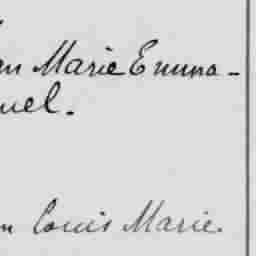 an Marie Emma-
nuel.
n Louis Marie.